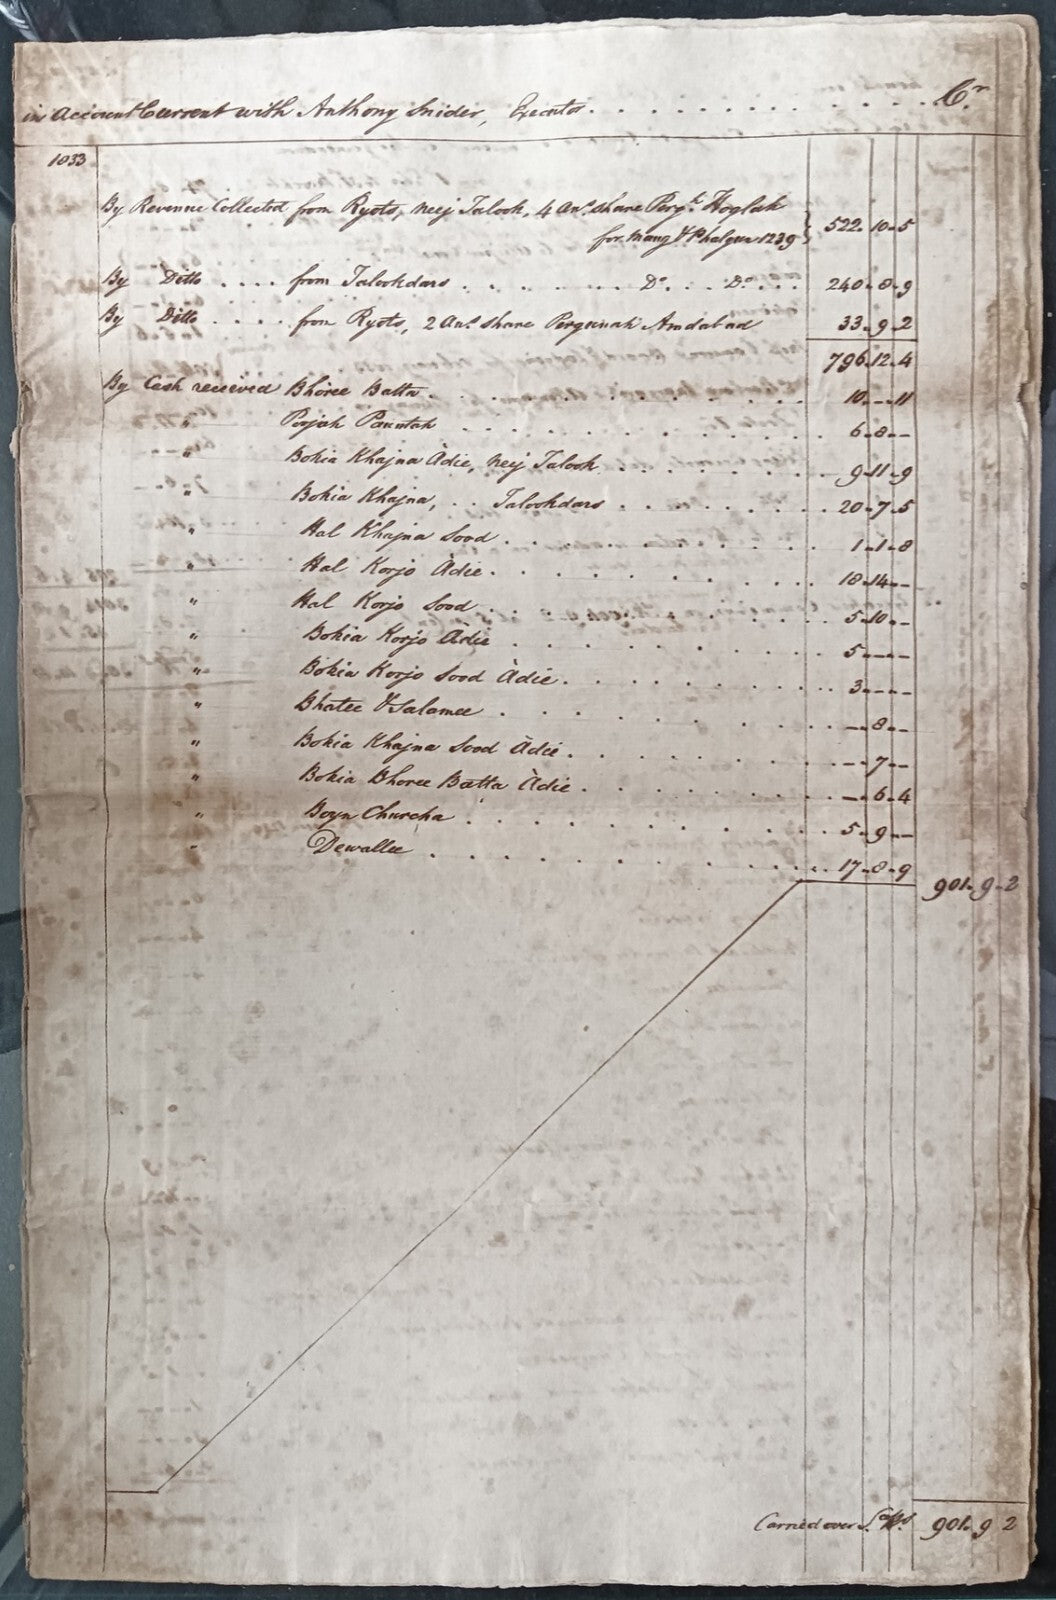 in Account Current with Anthony Snider, Executor . . . . . . . . . . . . . Cr.
1833
By Revenue Collected from Ryots, Neej Talook, 4 Ans. share Pergh. Hoglah
for Maug & Phalgun 1239 } 522 " 10 " 5
By Ditto . . . . from Talookdars . . . . . . . . Do. . . Do. . . . 240 " 8 " 9
By Ditto . . . . from Ryots, 2 Ans. share Pergunnah Amdabad 33 " 9 " 2
796 " 12 " 4
By Cash received Bhoree Batta . . . . . . . . . . . . 10 " — " 11
" Poojah Pauntah . . . . . . . . . . . . 6 " 8 " —
" Bokia Khajna Àdie, Neej Talook . . . . . . . 9 " 11 " 9
" Bokia Khajna, . . Talookdars . . . . . . . . 20 " 7 " 5
" Hal Khajna Sood . . . . . . . . . . 1 " 1 " 8
" Hal Korjo Àdie . . . . . . . . . . 18 " 14 " —
" Hal Korjo Sood . . . . . . . . . . 5 " 10 " —
" Bokia Korjo Àdie . . . . . . . . . . 5 " — " —
" Bokia Korjo Sood Àdie . . . . . . . . . 3 " — " —
" Bhatee & Salamee . . . . . . . . . — " 8 " —
" Bokia Khajna Sood Àdie . . . . . . . . — " 7 " —
" Bokia Bhoree Batta Àdie . . . . . . . . — " 6 " 4
" Boyn Churcha . . . . . . . . . . 5 " 9 " —
" Dewallee . . . . . . . . . . 17 " 8 " 9
901 " 9 " 2
Carried over Sa. Rs. 901 " 9 " 2